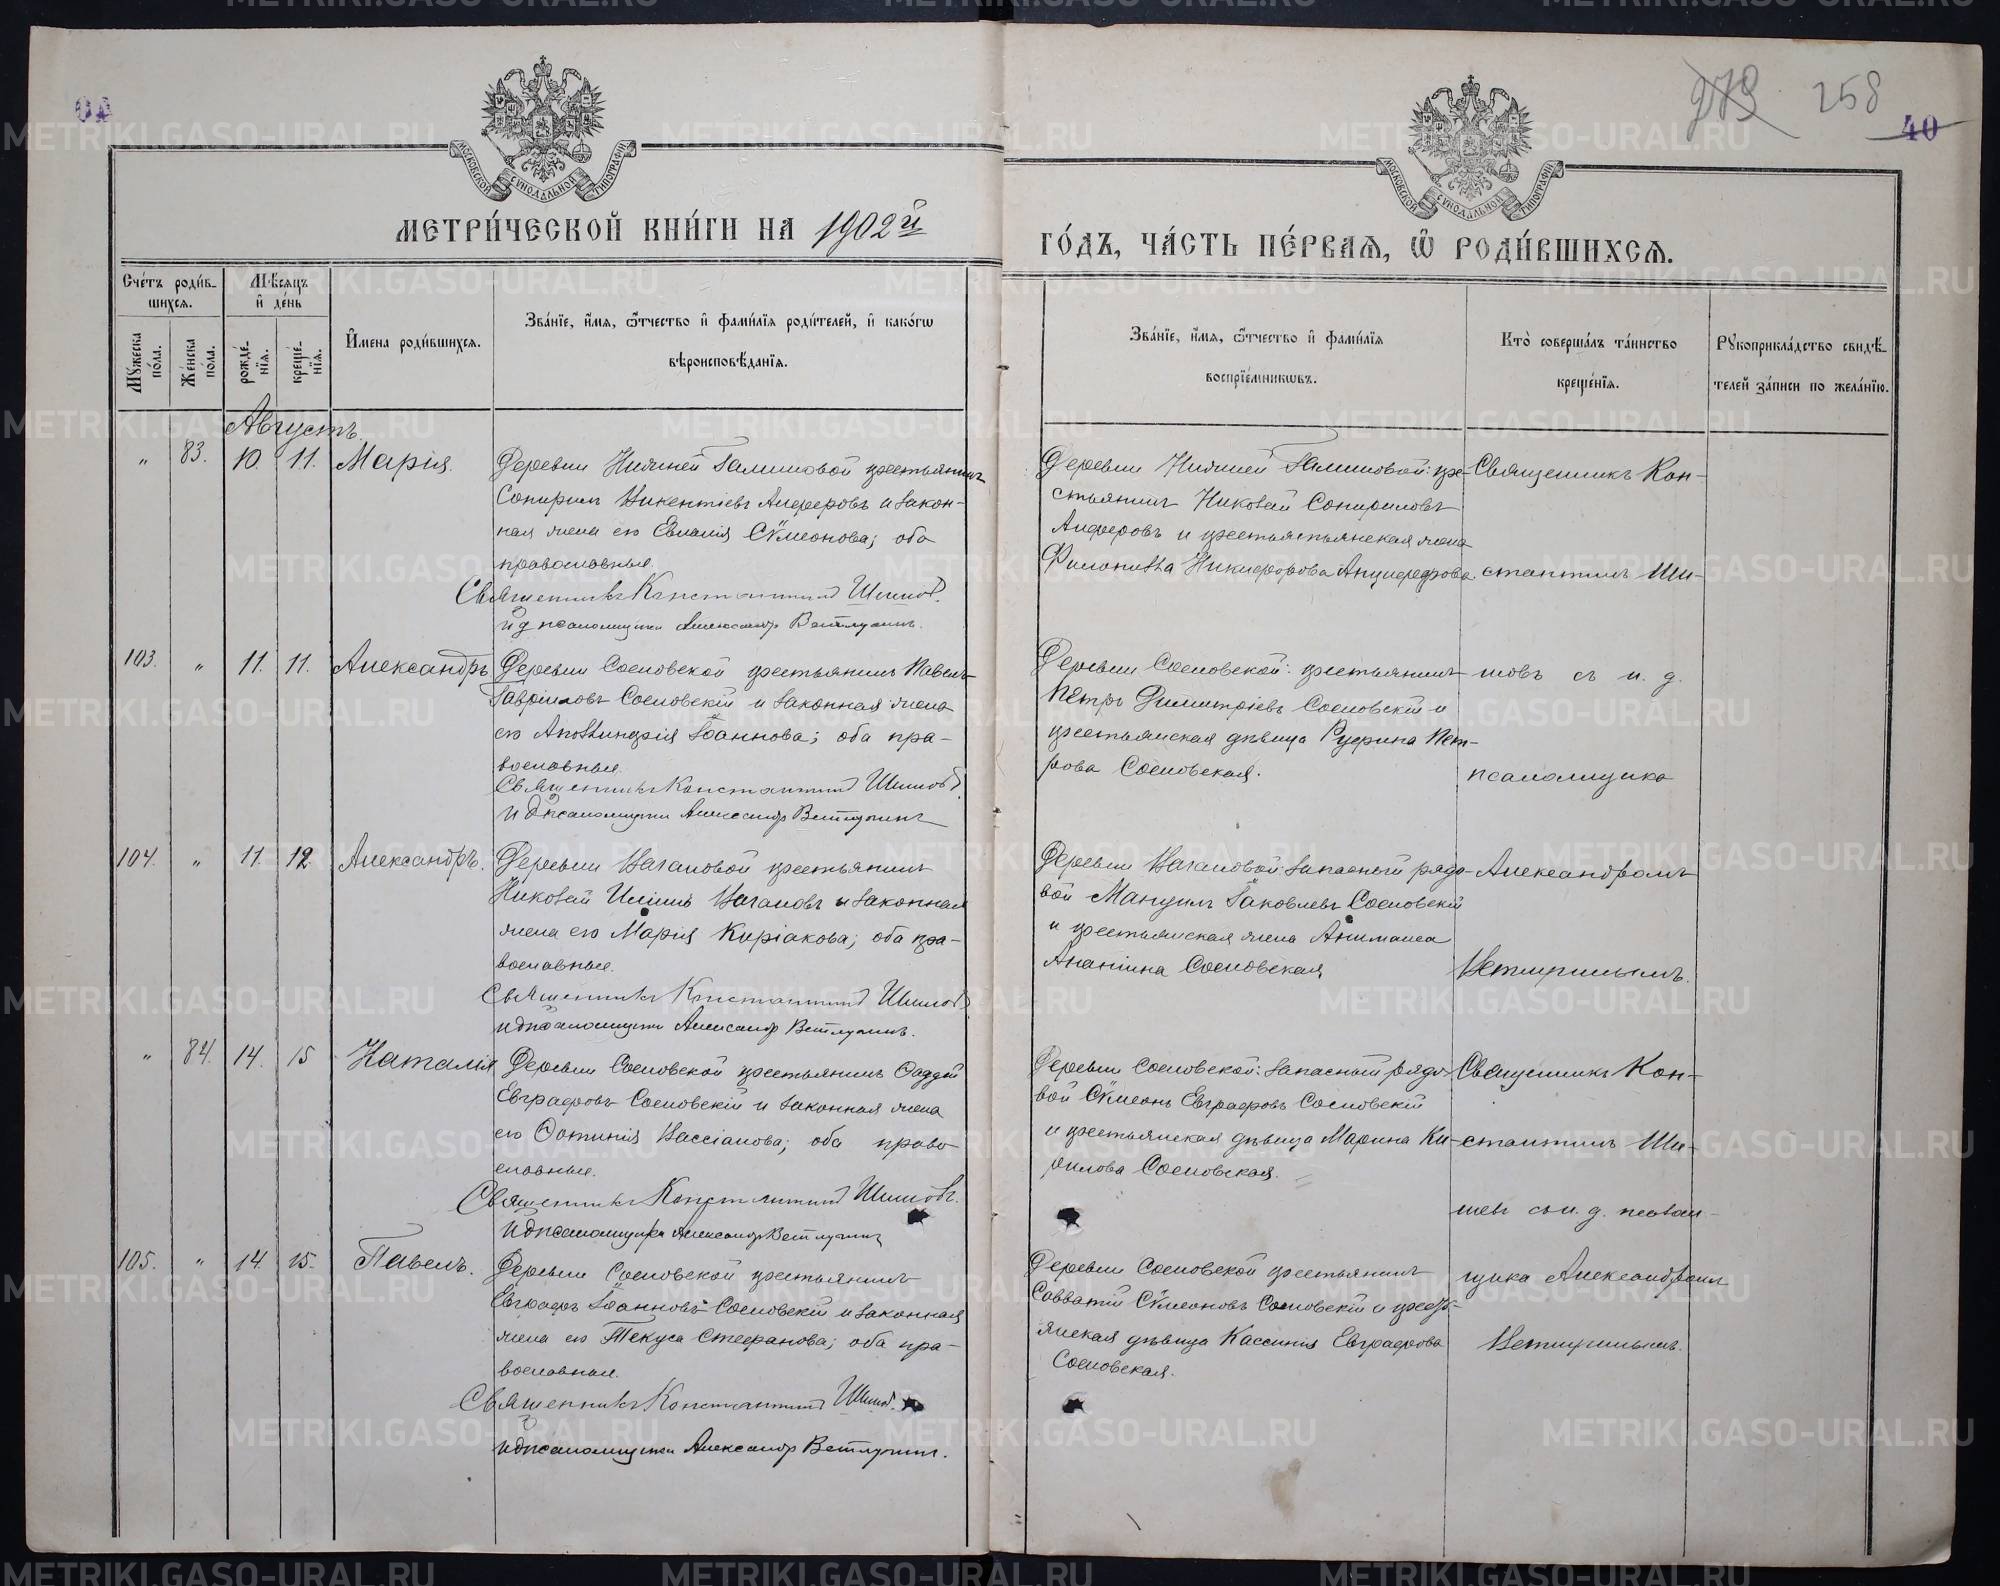 273 258
40
МОСКОВСКОЙ СѴНОДАЛЬНОЙ ТИПОГРАФІИ
МОСКОВСКОЙ СѴНОДАЛЬНОЙ ТИПОГРАФІИ
МЕТРИ́ЧЕСКОЙ КНИ́ГИ НА 1902й
ГО́ДЪ, ЧА́СТЬ ПЕ́РВАЯ, Ѽ РОДИ́ВШИХСЯ.
Сче́тъ роди́в-
шихся.
Мѣ́сяцъ
и де́нь
Мꙋжеска по́ла.
Же́нска по́ла.
рожде́нїя.
креще́нїя.
И҆мена роди́вшихся.
Зва́нїе, и҆́мѧ, ѻ҆́тчество и҆ фами́лїѧ роди́телей, и҆ како́гѡ
вѣроисповѣ́данїѧ.
Зва́нїе, и҆́мѧ, ѻ҆́тчество и҆ фами́лїѧ
воспрїе́мникѡвъ.
Кто̀ соверша́лъ та́инство
креще́нїѧ.
Рꙋкоприкла́дство свидѣ́-
телей за́писи по жела́нїю.
Августъ.
" 83. 10. 11. Марія.
Деревни Нижней Галишовой крестьянинъ
Викентіевъ Анферовъ и закон-
ная жена его Евланія Сѵмеонова; оба
православные.
Священникъ Константинъ Шишовъ.
И д псаломщика Александр Ветлугинъ.
Деревни Нижней Галишовой: кре-
стьянинъ Николай
Анферовъ и крестьянская жена
Никифорова
Священникъ Кон-
стантинъ Ши-
103. " 11. 11. Александръ
Деревни Сосновской крестьянинъ Павелъ
Гавриловъ Сосновскій и законная жена
его Аполлинарія Іоаннова; оба пра-
вославные.
Священникъ Константинъ Шишовъ.
И д псаломщика Александр Ветлугинъ
Деревни Сосновской: крестьянинъ
Петръ Димитріевъ Сосновскій и
крестьянская дѣвица Руфина Пет-
рова Сосновская.
шовъ съ и. д.
псаломщика
104. " 11. 12. Александръ.
Деревни Вагановой крестьянинъ
Николай Ильинъ Вагановъ и законная
жена его Марія Киріакова; оба пра-
вославные.
Священникъ Константинъ Шишовъ
и д псаломщика Александр Ветлугинъ.
Деревни Вагановой: запасный рядо-
вой Мануилъ Іаковлевъ Сосновскій
и крестьянская жена
Ананіина Сосновская
Александромъ
Ветлугинымъ.
" 84. 14. 15 Наталія
Деревни Сосновской крестьянинъ Фаддей
Евграфовъ Сосновскій и законная жена
его Фотинія Кассіанова; оба право-
славные.
Священникъ Константинъ Шишовъ.
И д псаломщика Александр Ветлугинъ
Деревни Сосновской: запасный рядо-
вой Сѵмеонъ Евграфовъ Сосновскій
и крестьянская дѣвица Марина Ки-
рилова Сосновская.
Священникъ Кон-
стантинъ Ши-
шевъ съ и. д. псалом-
105. " 14. 15. Павелъ.
Деревни Сосновской крестьянинъ
Евграфъ Іоанновъ Сосновскій и законная
жена его Текуса Стефанова; оба пра-
вославные.
Священникъ Константинъ Шишовъ.
и д псаломщика Александр Ветлугинъ.
Деревни Сосновской крестьянинъ
Савватій Сѵмеоновъ Сосновскій и кресть-
янская дѣвица Евграфова
Сосновская.
щика Александромъ
Ветлугинымъ.
METRIKI.GASO-URAL.RU